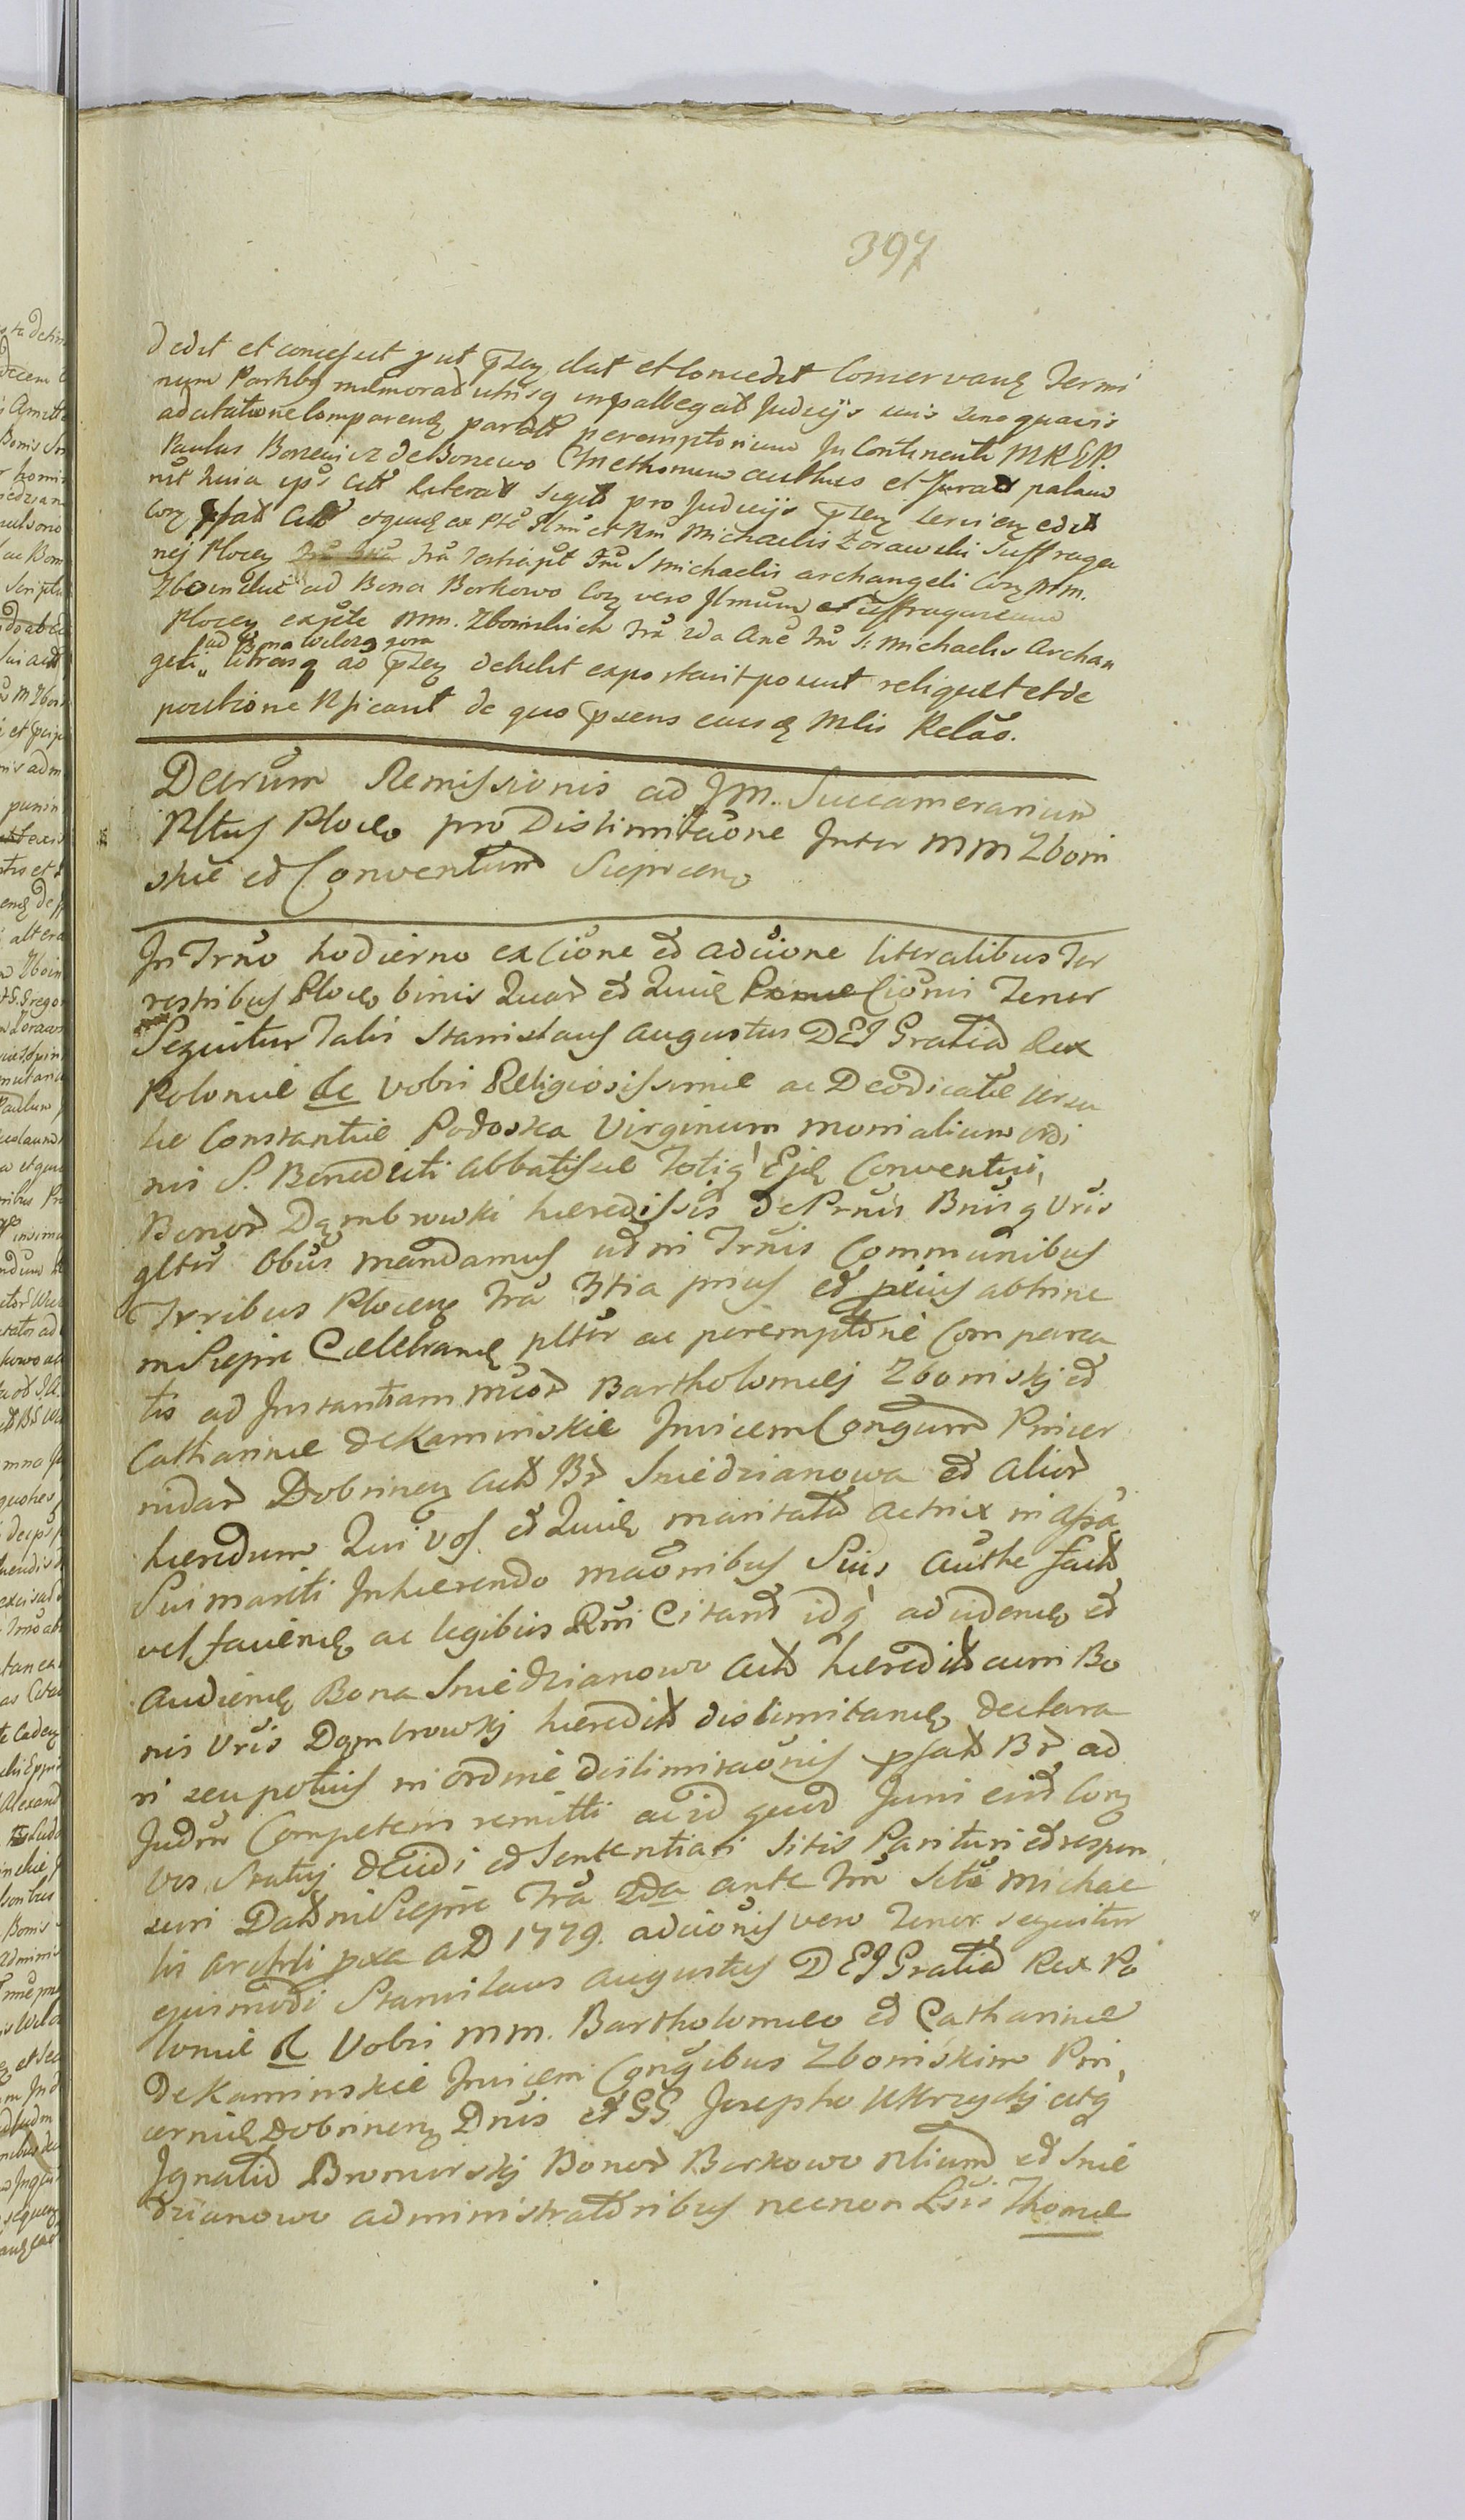 397
dedit et concessit put pntz dat et Concedit Conservanz Termi
num Partibz memorat utrisq in pallegat Judicijs suis sine quavis
adcitatione Comparenz partib peremptorium In Continenti MRGP.
Paulus Borzewicz de Borzewo Cmethonem authus et Jurat palam
Corz pfat et ex Illmi et Rmi Michaelis Zorawski Suffraga
nej Plocen fra Tertia pst Fm S Michaelis archangeli Corz Mm.
Zboinskie ad Bona Borkowo Corz vero Illmum Suffraganeum
Plocen ex pte Mm. Zboinskich fra 2da Ane Fm S. Michaelis Archan
ad Bona
geli utrasq ad debelit exportavit posuit reliquit et de
positione de quo psens ejusz Mlis Relao.
Decrum Remissionis ad JM. Succamerarium
Pltus Plocen pro Dislimitaone Inter MM Zboin
skie et Conventum Sieprcen
In Trno hodierno ex Cione et adcione literalibus Ter
restribus Plocen binis Quar et Quiz Cionis Tenor
Sequitur Talis Stanislaus Augustus DEI Gratia Rex
Poloniæ &c Vobis Religiosissimæ ac Deodicatæ Ursu
læ Constantiæ Podoska Virginum monialium ordi
nis S. Benedicti Abbatissæ Totiq Ejz Conventui,
Bonor Dąmbrowski hæredissis de Prnis Bnisq Vris
gltir Obus mandamus ut in Trnis Communibus
Trribus Plocenz fra 3tia prius et abhinc
in Siepre Celebranz pltir ac peremptorie Compara
tis ad Instantiam Mcor Bartholomæj Zboinskj et
Catharinæ de Kaminskie Invicem Congum Pincer
nidar Dobrinen Actt Br Sniedzianowa et alior
hæredum Qui vos et Quiz maritata actrix in assa
Sui mariti Inhærendo maonibus Suis authe factt
vel favienz ac legibus Rni Citant idq ad videnz et
Audienz Bona Sniedzianowo Actt hæreditt cum Bo
nis Vris Dąmbrowskj hæreditt dislimitanz declara
ri seu potius in ordine dislimitaonis psatt Br ad
Judm Competens remitti ac id quod Juri erit Corz
vos Statuj decidi et Sententiari sitis Parituri et respon
suri Datt in Siepre fra 2da ante Fm Scti Michae
lis Archli pxa AD 1779. adcionis vero Tenor sequitur
ejusmodi Stanislaus Augustus DEI Gratia Rex Po
loniæ &c Vobis MM. Bartholomæo et Catharinæ
de Kaminskie Invicem Congibus Zboinskim Pin
cernis Dobrinenz Dnis et GG Josepho Ukrzyckj atq
Ignatio Bromirskj Bonor Borkowo et Snie
dzianowo administratoribus necnon Lsis Thomæ